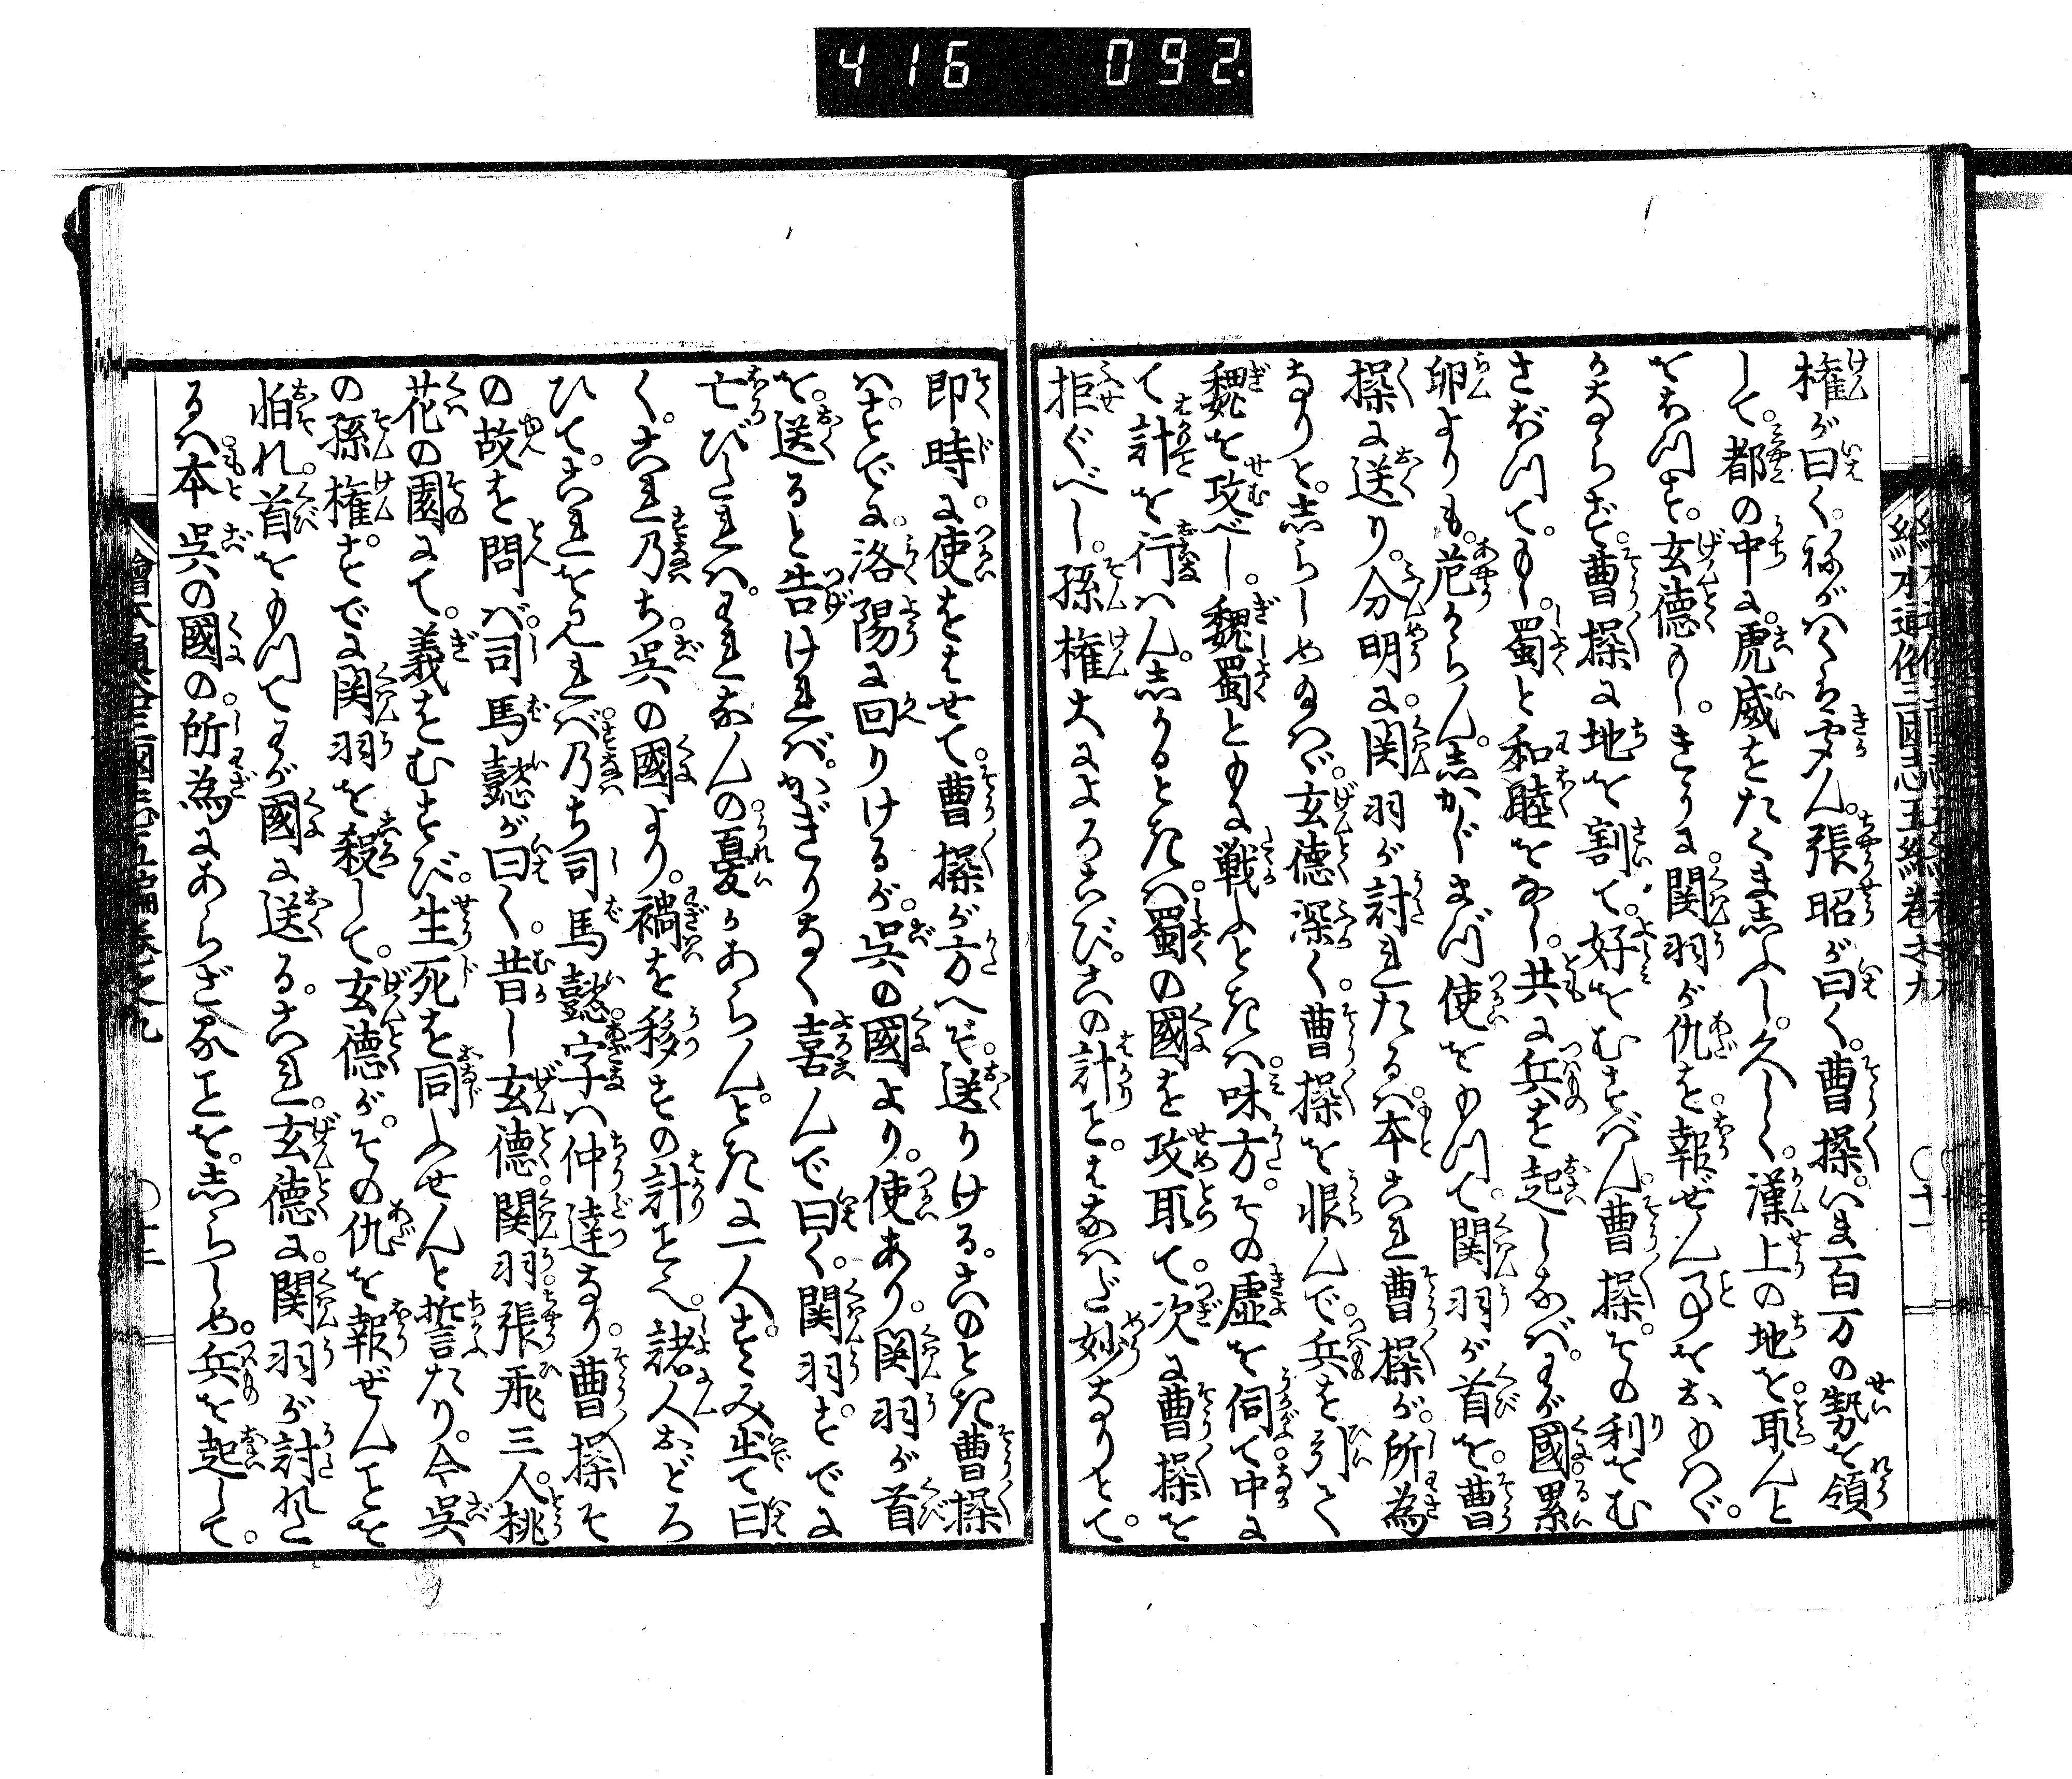 416 092.
繪本通俗三國志五編巻之九
権が曰くねがはくは聞ん。張昭が曰く。曹操いま百万の勢を領
して。都の中に虎威をたくましふし。久しく。漢上の地を取んと
をもつす。玄德もしきうに。関羽が仇を報ぜん事をおもはゞ。
かならず。曹操に地を割て。好をむすばん。曹操。その利をむ
さぼつて。もし。蜀と和睦をなし。共に兵を起しなば。わが國累
卵よりも。危からん。しかじまづ使をもつて。関羽が首を。曹
操に送り。分明に。関羽が討れたるは。本これ曹操が。所為
なりと。しらしめなば。玄德深く。曹操を恨んで。兵を引て
魏を攻べし。魏蜀ともに戦ふときは。味方。その虚を伺て中に
て計を行はん。しかるときは。蜀の國を攻取て。次に曹操を
拒ぐべし。孫権大によろこび。この計こと。はなはだ妙なりとて。
即時に使をはせて。曹操が方へぞ。送りける。このとき曹操
はすでに。洛陽に回りけるが。呉の國より。使あり。関羽が首
を。送ると告ければ。かぎりなく喜んで曰く。関羽。すでに
亡びたれば。われなんの憂かあらん。ときに一人。すゝみ出て曰
く。これ乃ち呉の國より。禍を移すの計ことなり。諸人おどろ
ひて。これを見れば。乃ち司馬懿。字は仲達なり。曹操そ
の故を問ば。司馬懿が曰く。昔し玄德。関羽。張飛三人。桃
花の園にて。義をむすび。生死を同ふせんと誓たり。今呉
の孫権。すでに関羽を殺して。玄德が。その仇を報ぜんことを
怕れ。首をもつてわが國に送る。これ。玄德に。関羽が討れた
るは。本呉の國の。所為にあらざることを。しらしめ。兵を起して。
繪本通俗三國志五編巻之九